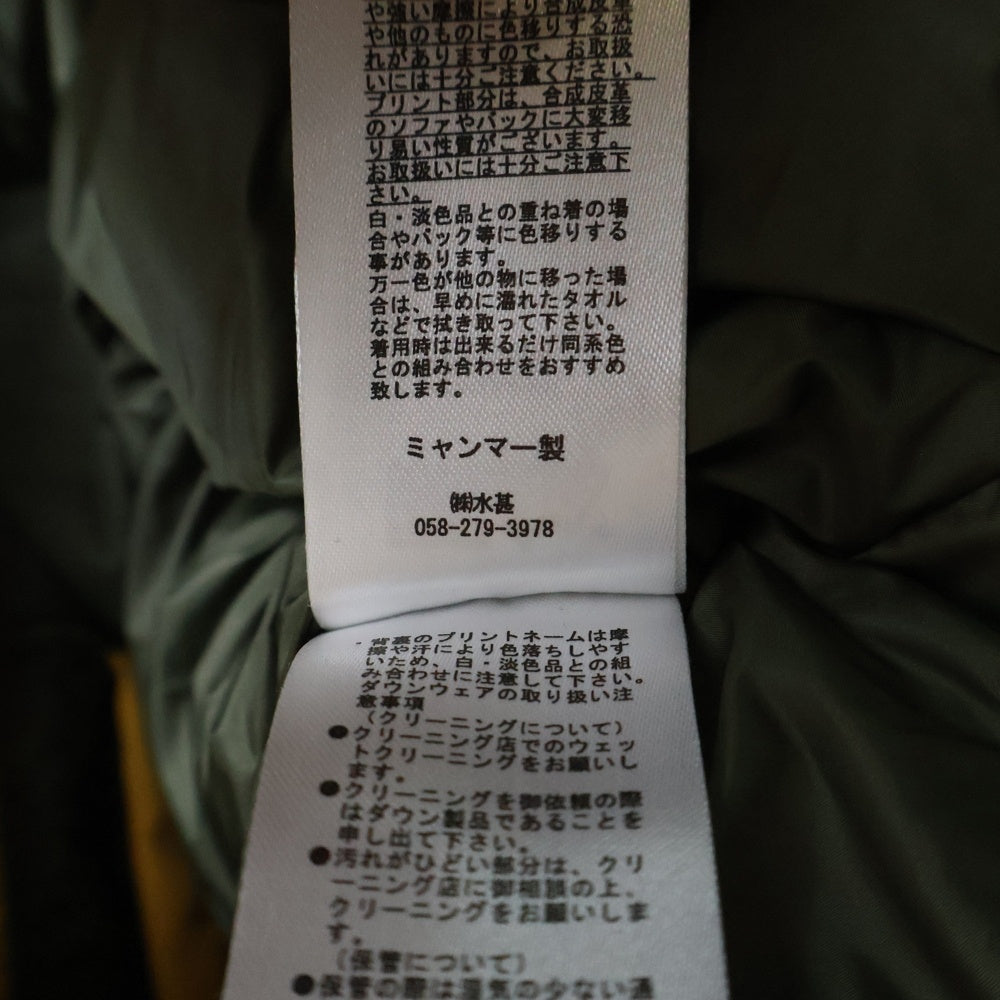 や強い摩擦により合成皮革
や他のものに色移りする恐
れがありますので、お取扱
いには十分ご注意ください。
プリント部分は、合成皮革
のソファやバックに大変移
り易い性質がございます。
お取扱いには十分ご注意下
さい。
白・淡色品との重ね着の場
合やバック等に色移りする
事があります。
万一色が他の物に移った場
合は、早めに濡れたタオル
などで拭き取って下さい。
着用時は出来るだけ同系色
との組み合わせをおすすめ
致します。
ミャンマー製
㈱水甚
058-279-3978
・背裏のプリントネームは摩
擦や汗により色落ちしやす
いため、白・淡色品との組
み合わせに注意して下さい。
ダウンウェアの取り扱い注
意事項
(クリーニングについて)
●クリーニング店でのウェッ
トクリーニングをお願いし
ます。
●クリーニングを御依頼の際
はダウン製品であることを
申し出て下さい。
●汚れがひどい部分は、クリ
ーニング店に御相談の上、
クリーニングをお願いしま
す。
(保管について)
●保管の際は湿気の少ない通